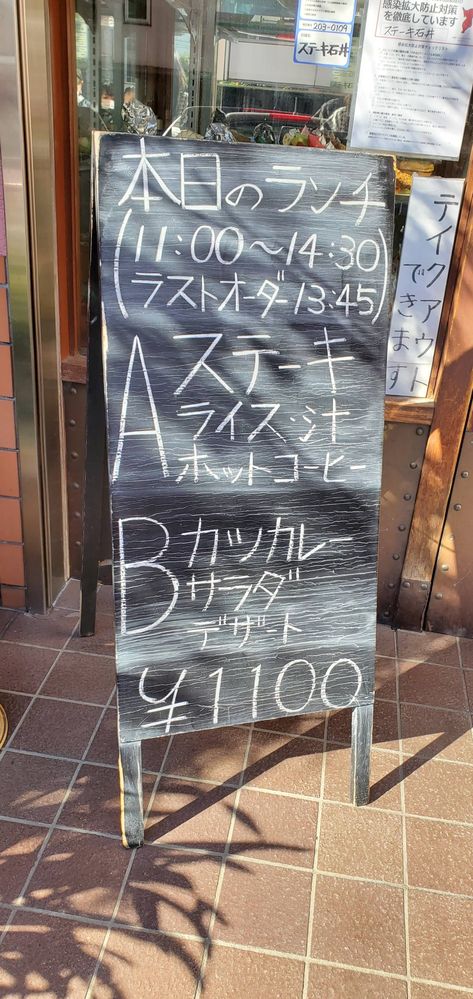 203-0109
ステーキ石井
感染拡大防止対策
を徹底しています
ステーキ石井
本日のランチ
(11:00～14:30
ラストオーダー13:45)
A ステーキ
ライス・汁
ホットコーヒー
B カツカレー
サラダ
デザート
¥1100
テイクアウト
できます